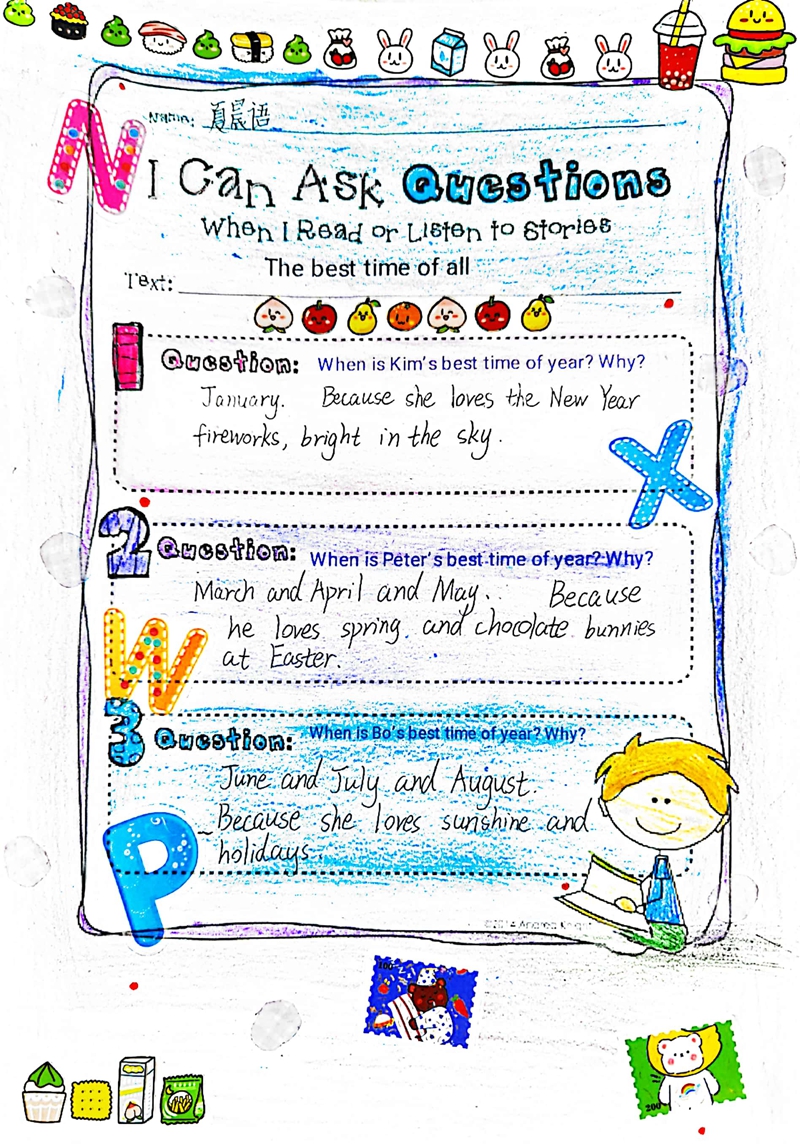 Name: 夏晨语
I Can Ask Questions
When I Read or Listen to Stories
The best time of all
Text:
1 Question: When is Kim's best time of year? Why?
January. Because she loves the New Year
fireworks, bright in the sky.
2 Question: When is Peter's best time of year? Why?
March and April and May.. Because
he loves spring. and chocolate bunnies
at Easter.
3 Question: When is Bo's best time of year? Why?
June and July and August.
Because she loves sunshine and
holidays.
N
X
W
P
100
200